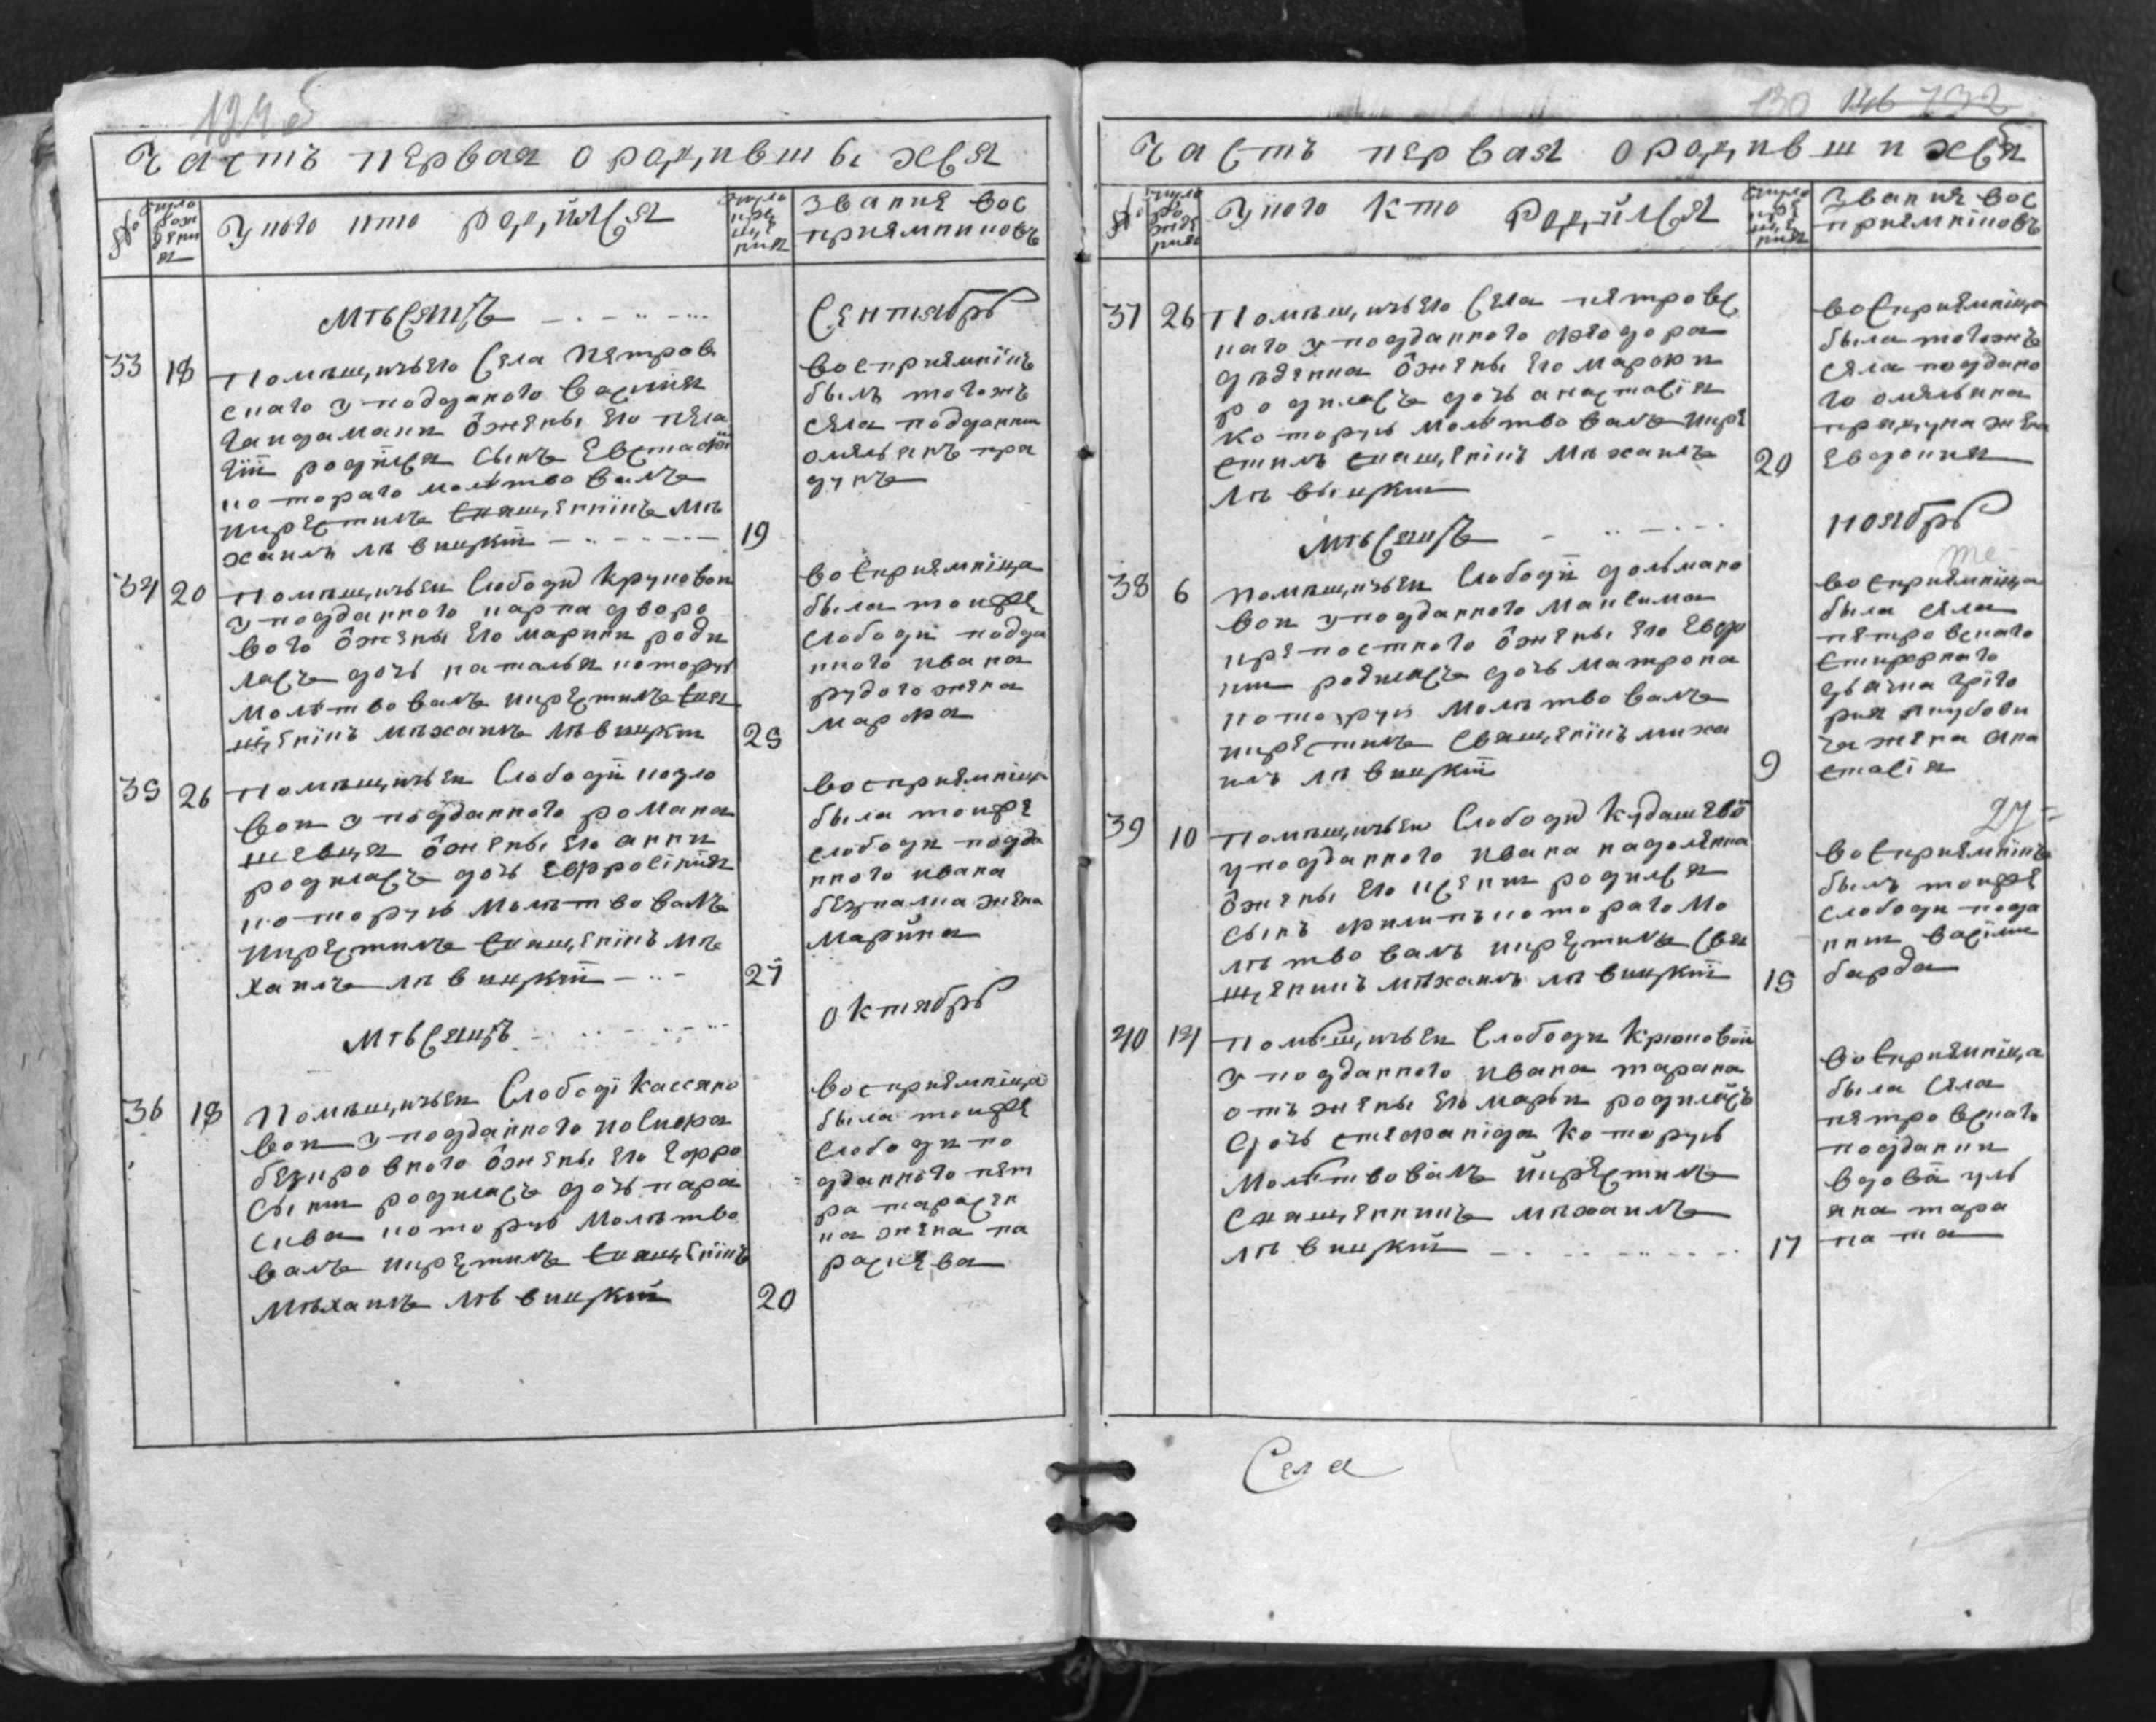 Часть первая о родившыхся
№ число рождения
У кого кто родился
число крещения
звания восприемниковъ
мѣсяцъ
Сентябрь
33 18
Помѣщичьего Села Петров
скаго у подданого Василия
Гайдамаки ѿжены его Пела
гѣи родился сынъ Евстафи
котораго молитвовалъ
икрестилъ священникъ Ми
хаилъ Левицкий
19
восприемникъ
былъ тогожъ
села подданни
омельянъ пра
дунъ
34 20
Помѣщичьей Слободы Круковои
у подданного карпа дворо
вого ѿжены его марины роди
лась дочь наталья которую
молитвовалъ икрестилъ свя
щенникъ михаилъ левицки
25
восприемница
была тоейже
слободы подда
нного ивана
рудого жена
марфа
35 26
Помѣщичьей Слободы козло
вои у подданного романа
шевця ѿжены его анни
родилась дочь Евфросиния
которую молитвовалъ
икрестилъ священникъ ми
хаилъ левицкий
27
восприемница
была тоейже
слободы подда
нного ивана
жена
марина
мѣсяцъ
октябрь
36 18
Помѣщичьей Слободы Касяно
вои у подданного никифора
безкровного ѿжены его Ефро
сыни родилась дочь пара
скева которую молитво
валъ икрестилъ священникъ
михаилъ левицкий
20
восприемница
была тоейже
слободы по
дданного пет
ра тарасен
ка жена па
раскева
130 146 132
Часть первая о родившихся
№ число рождения
У кого кто родился
число крещения
Звания восприемниковъ
37 26
Помѣщичьего Села петровс
каго у подданного федора
ѿжены его марфи
родилась дочь анастасия
которую молитвовалъ икре
стилъ священникъ михаилъ
левицки
20
восприемница
была тогожъ
села поддано
го омельяна
прядуна жена
евдокия
мѣсяцъ
ноябрь
38 6
помѣщичьей Слободы долмато
вои у подданного максима
крепостного ѿжены его Евдо
кии родилась дочь матрона
которую молитвовалъ
икрестилъ священникъ миха
илъ левицкий
9
восприемница
была села
петровскаго
дьячка григо
рия якубови
ча жена ана
стасия
39 10
Помѣщичьей Слободы Кудашево
у подданного ивана надоленка
ѿжены его ксении родился
сынъ филипъ котораго мо
литвовалъ икрестилъ свя
щенникъ михаилъ левицкий
15
восприемникъ
былъ тоейже
слободы подда
нни василий
барда
40 14
Помѣщичьей Слободы Крюковой
у подданного ивана тарана
отъ жены его марьи родилась
дочь стефанида которую
молитвовалъ икрестилъ
священникъ михаилъ
левицкий
17
восприемница
была села
петровскаго
подданни
вдова уль
яна тара
Села